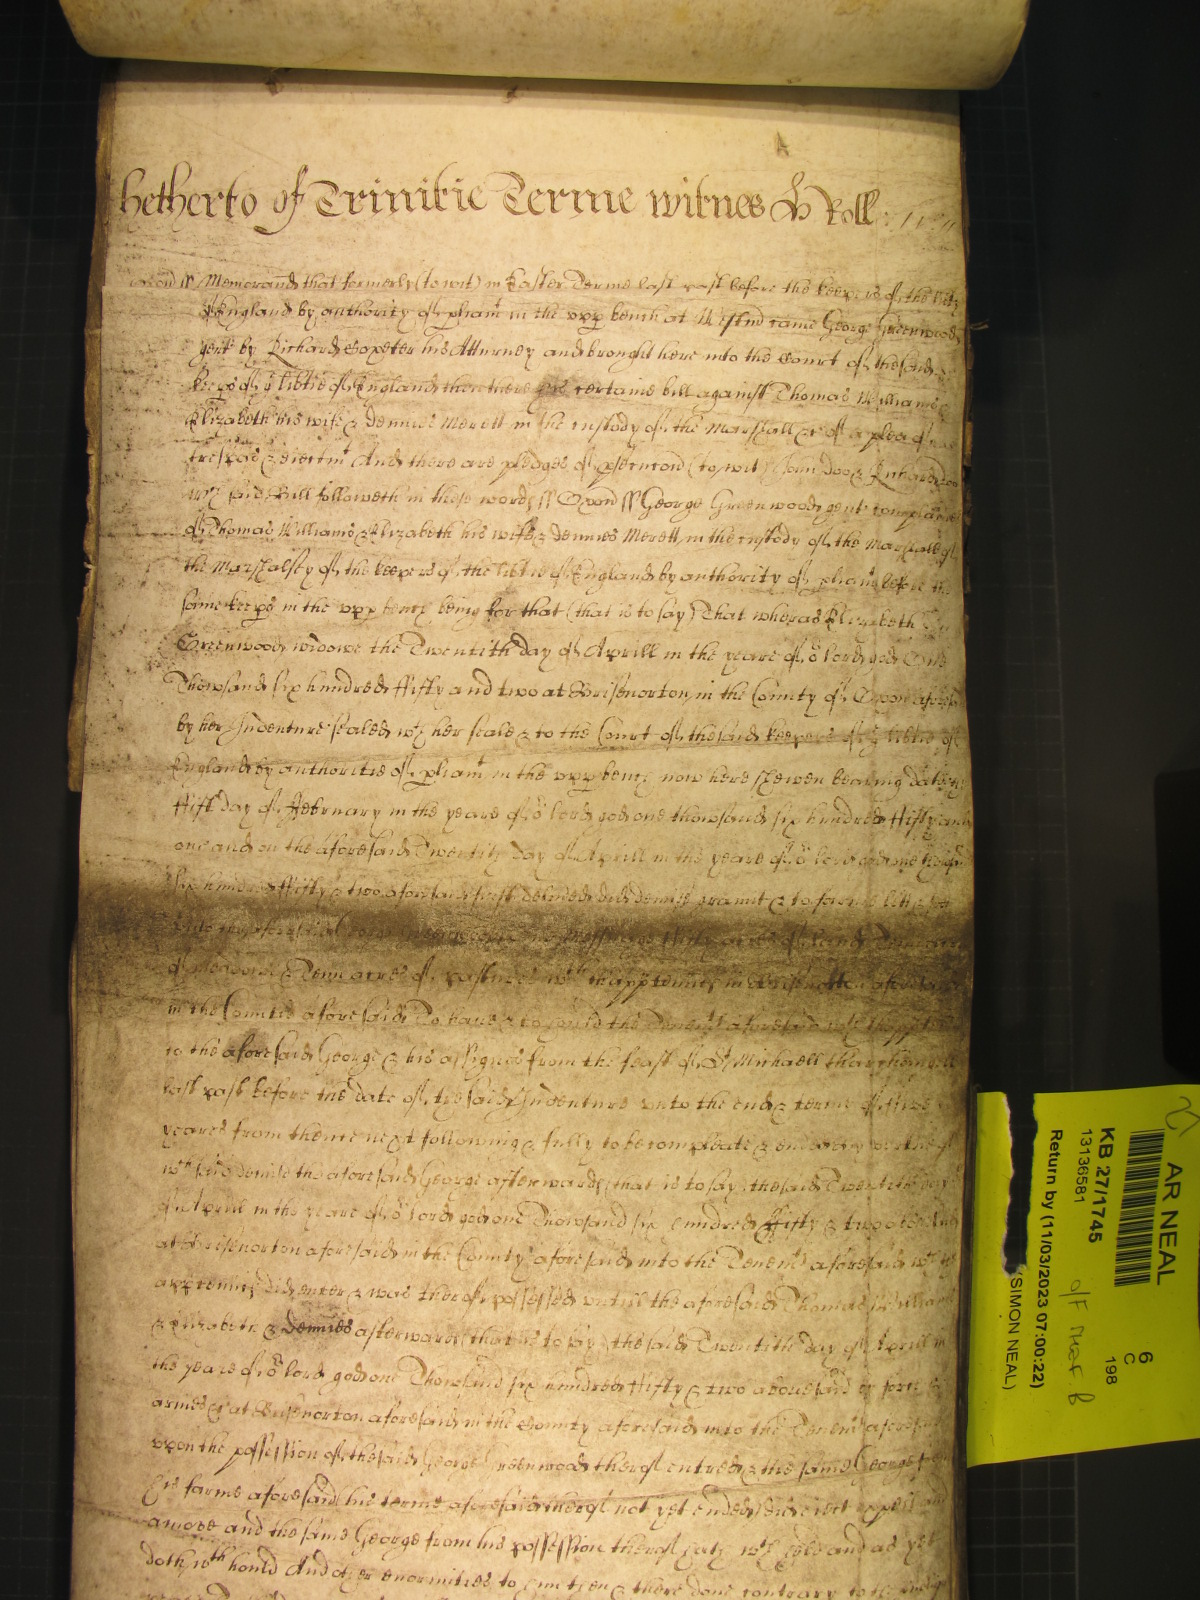 hetherto of Trinitie Terme witnes Roll
Memorand that formerly (to wit) in Easter Terme last past before the keepers of the libty
of England by authority of pliamt in the upp bench at Westmr came George Greenwood
gent by Richard his Atturney and brought here into the Court of the said
keeps of ye libtie of England then there certaine bill against Thomas Williams
Elizabeth his wife & dennis Merett in the custody of the Marshall &c of a plea of
trespas & eiectmt And there are pledges of psecucon (to wit) John doo & Richard roo
wch said Bill followeth in these words ss Oxon ss George Greenwood gent complaines
of Thomas Williams & Elizabeth his wife & dennis Merett in the custody of the Marshall of
the Marshalsey of the keepers of the libtie of England by authority of pliamt before the
same keeps in the upp bench being for that (that is to say) That wheras Elizabeth
Greenwood widowe the Twentith day of Aprill in the yeare of or lord god One
Thowsand six hundred fifty and two at Brisenorton in the County of Oxon aforesd
by her Indenture sealed wth her seale & to the Court of the said keepers of ye libtie of
England by authoritie of pliamt in the upp bench now here shewen bearing date the
first day of February in the yeare of or lord god one thowsand six hundred fifty and
one and on the aforesaid Twentith day of Aprill in the yeare of or lord god one thowsand
six hundred fifty & two aforesaid first deliuered did demise graunt & to farme lett
unto the aforesaid George Greenwood messuage thirty acres of land Tenn acres
of meadow & Tenn acres of pasture wth thapptenncs in Brisenorton aforesaid
in the Countie aforesaid To haue & to hould the Tenemts aforesaid wth
to the aforesaid George & his assignes from the feast of St Michaell tharchangell
last past before the date of the said Indenture unto the end & terme of five
yeares from thence next following & fully to be compleate & ended by vertue of
wch said demise the aforesaid George afterwards (that is to say) the said Twentith day
of Aprill in the yeare of or lord god one Thowsand six hundred fifty & two abovesaid
at Brisenorton aforesaid in the County aforesaid into the Tenemts aforesaid wth the
apptenncs did enter & was therof possessed untill the aforesaid Thomas Williams
& Elizabeth & dennies afterwards (that is to say) the said Twentith day of Aprill in
the yeare of or lord god one Thowsand six hundred fifty & two abouesaid by force &
armes &c at Brisenorton aforesaid in the County aforesaid into the Tenemts aforesaid
upon the possession of the said George Greenwood therof entred & the same George from
his farme aforesaid his terme aforesaid therof not yet ended did eiect expell and
amove and the same George from his possession therof hath wth held and as yet
doth wthhould And other enormities to him then & there done contrary to the
AR NEAL
KB 27/1745
13136581
Return by (11/03/2023 07:00:22)
(SIMON NEAL)
6
C
198